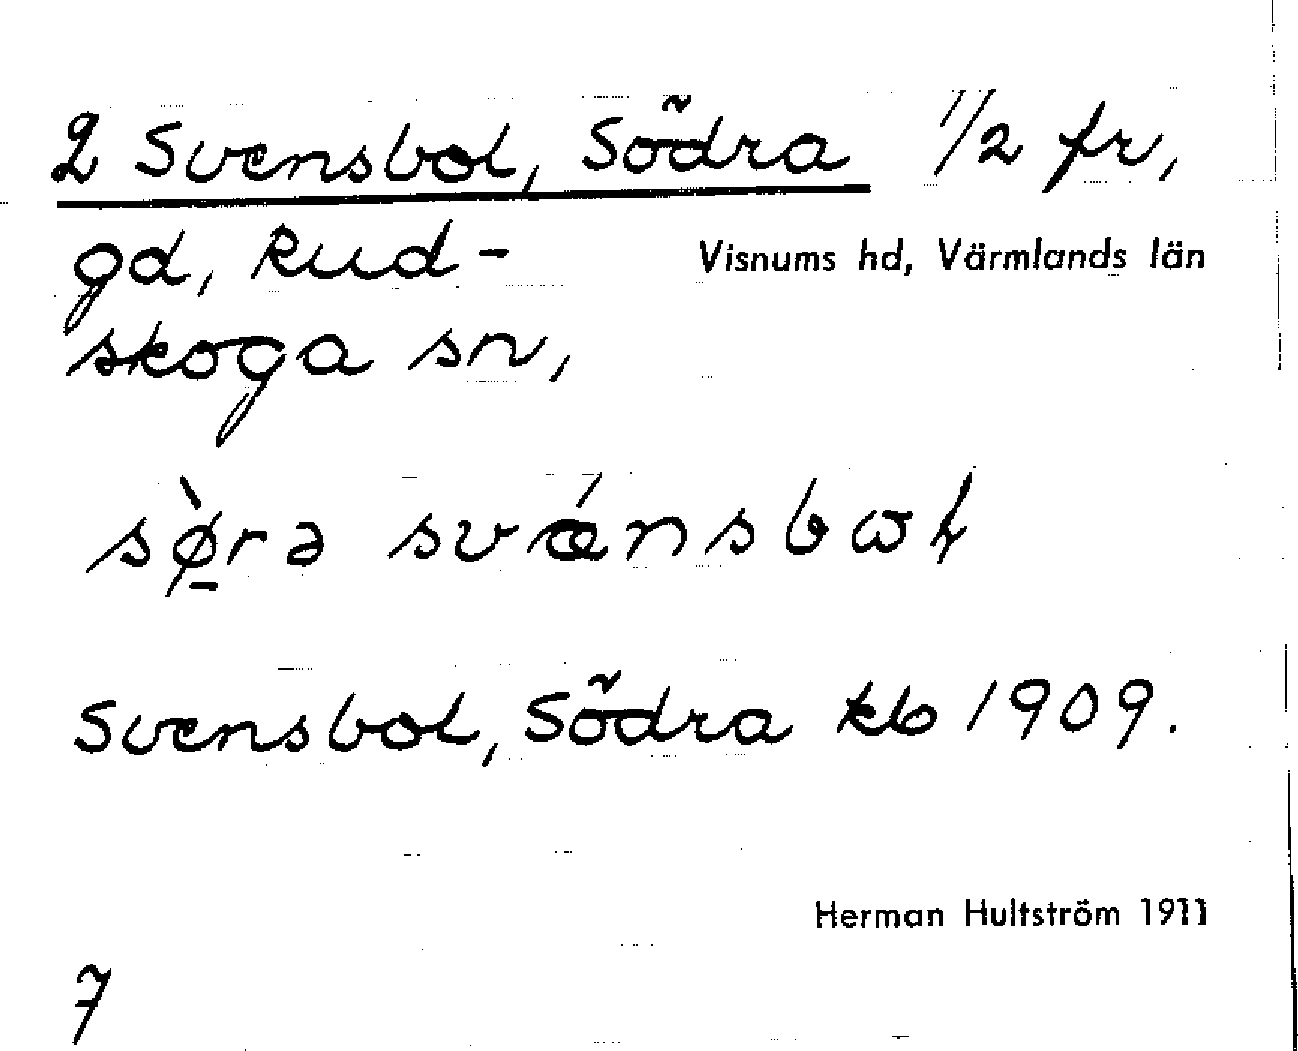 2 Svensbol, Södra 1/2 fr,
gd, Rud-
Visnums hd, Värmlands län
skoga sn,
sø̠̀rə svǽnsbɷɫ
Svensbol, Södra kb 1909.
Herman Hultström 1911
7